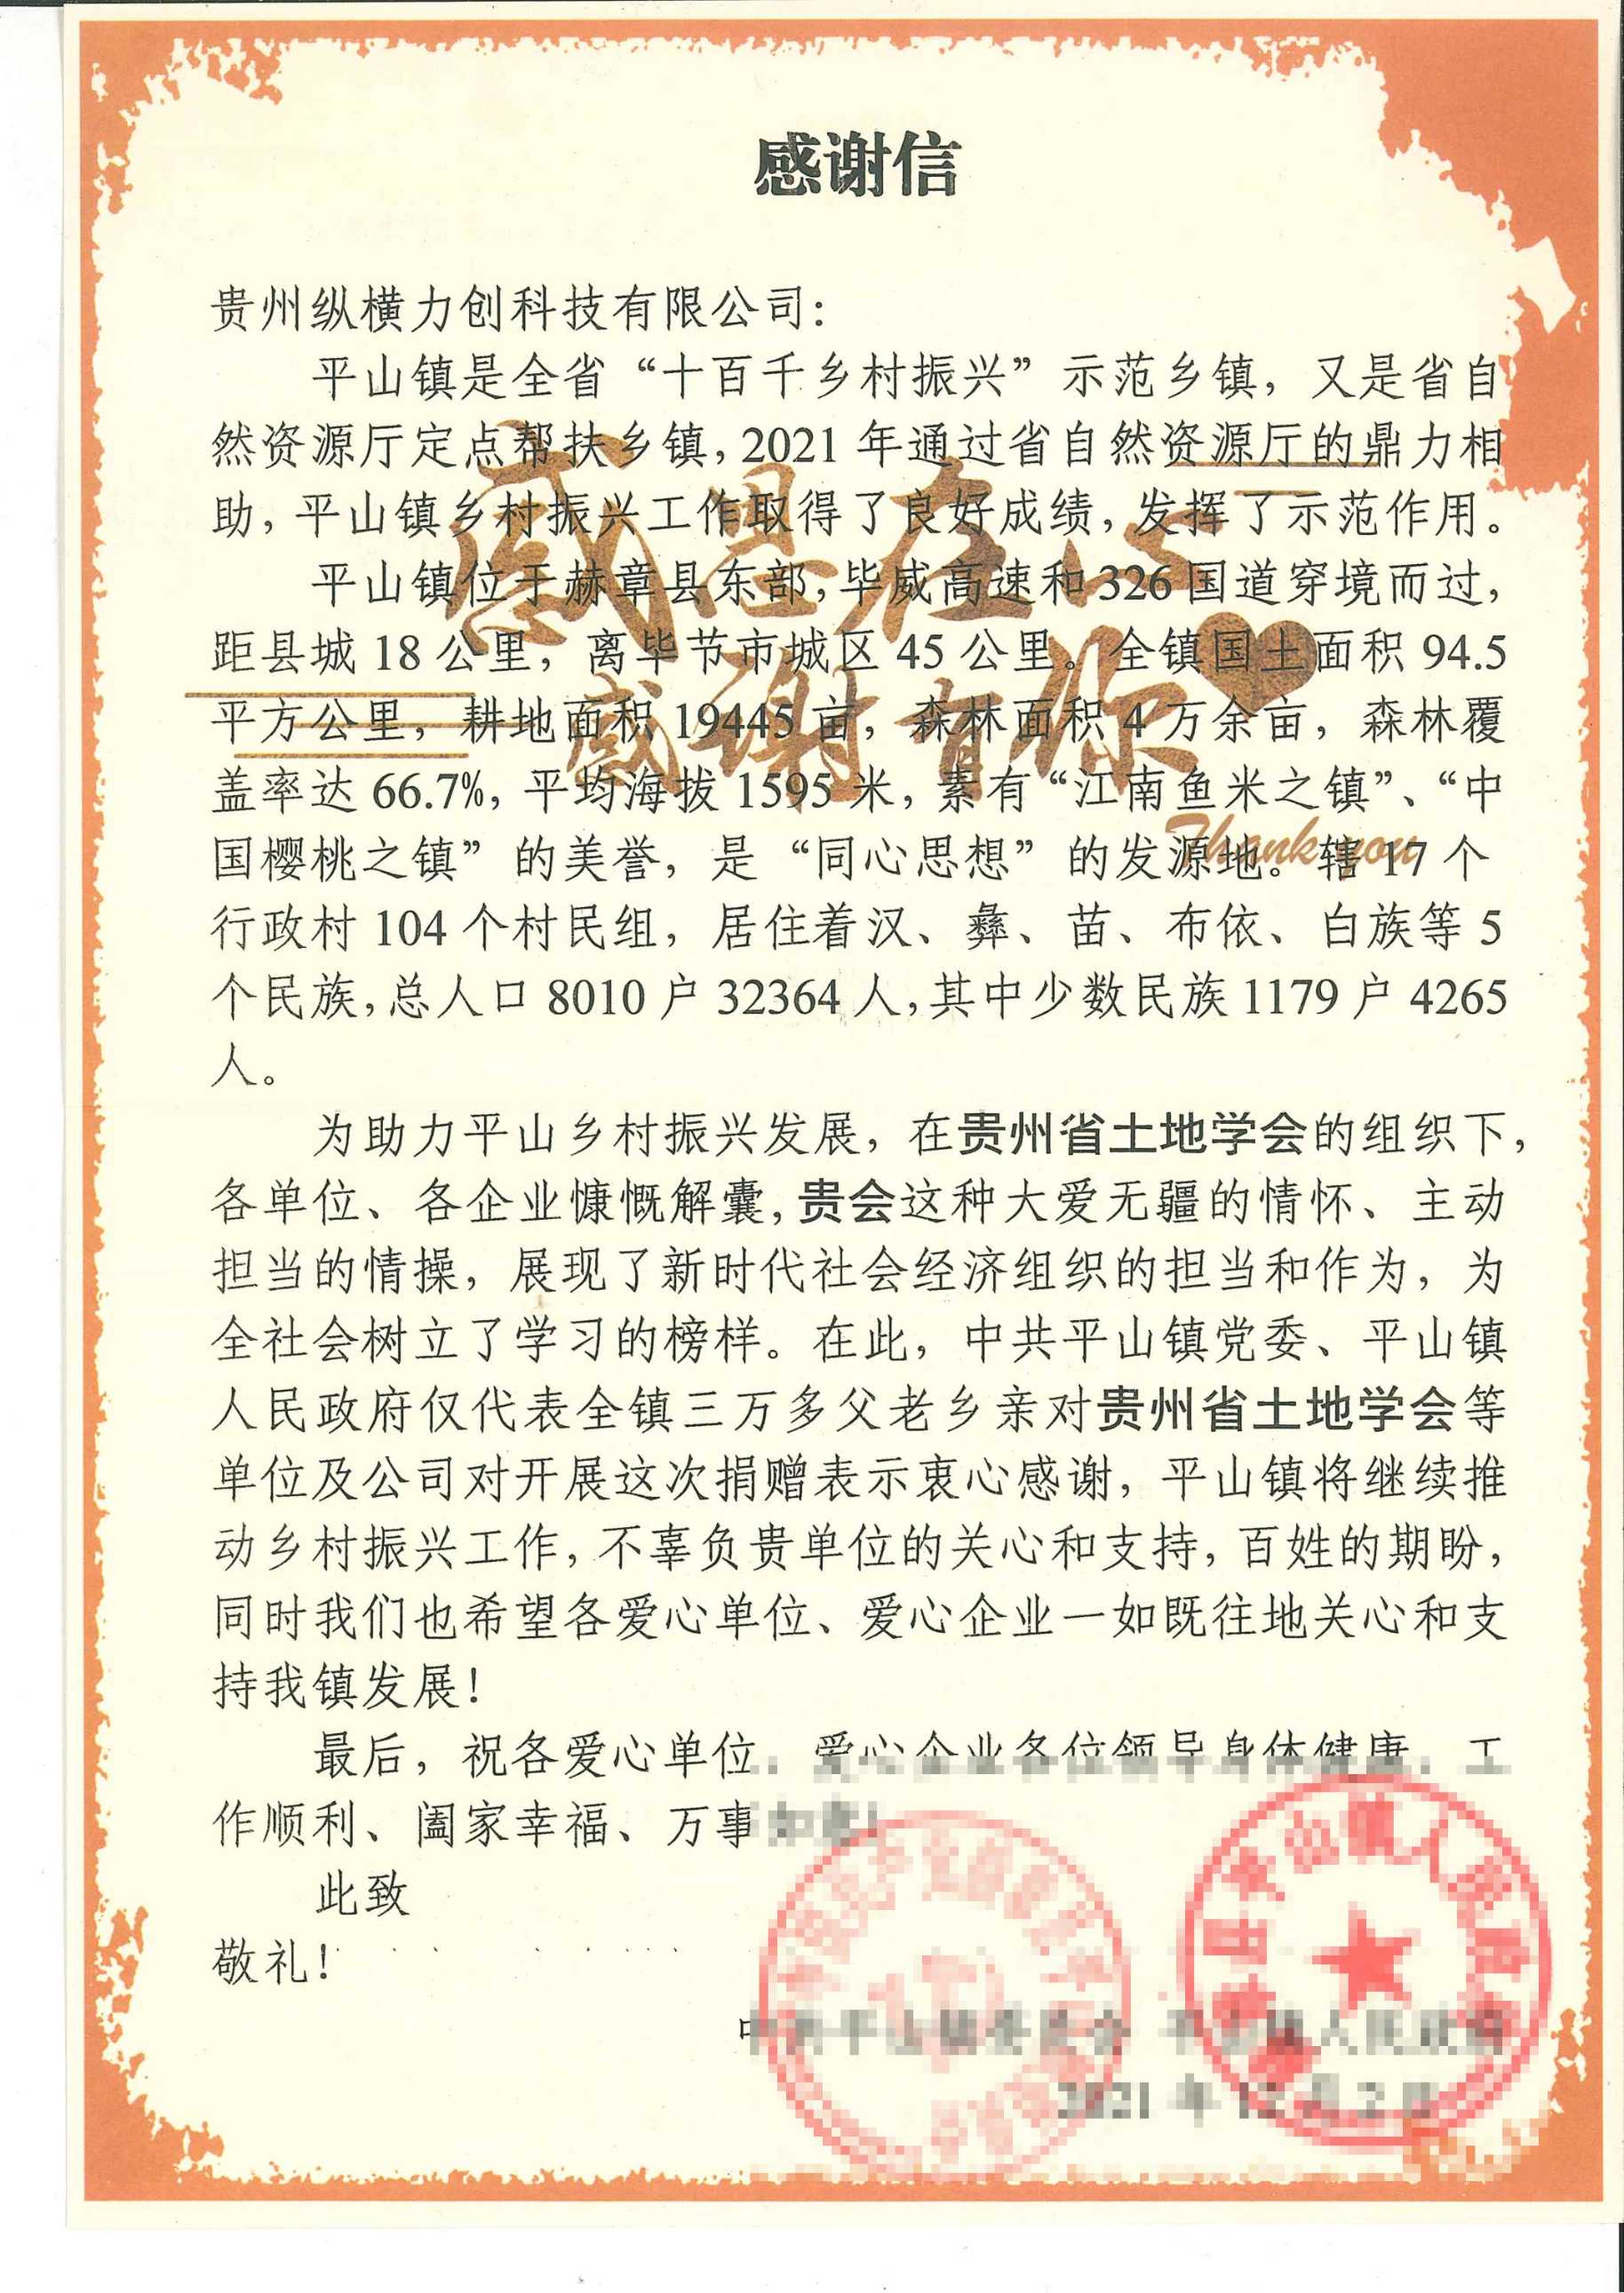 感谢信
贵州纵横力创科技有限公司：
平山镇是全省“十百千乡村振兴”示范乡镇，又是省自
然资源厅定点帮扶乡镇，2021 年通过省自然资源厅的鼎力相
助，平山镇乡村振兴工作取得了良好成绩，发挥了示范作用。
平山镇位于赫章县东部，毕威高速和 326 国道穿境而过，
距县城 18 公里，离毕节市城区 45 公里。全镇国土面积 94.5
平方公里，耕地面积 19445 亩，森林面积 4 万余亩，森林覆
盖率达 66.7%，平均海拔 1595 米，素有“江南鱼米之镇”、“中
国樱桃之镇”的美誉，是“同心思想”的发源地。辖 17 个
行政村 104 个村民组，居住着汉、彝、苗、布依、白族等 5
个民族，总人口 8010 户 32364 人，其中少数民族 1179 户 4265
人。
为助力平山乡村振兴发展，在贵州省土地学会的组织下，
各单位、各企业慷慨解囊，贵会这种大爱无疆的情怀、主动
担当的情操，展现了新时代社会经济组织的担当和作为，为
全社会树立了学习的榜样。在此，中共平山镇党委、平山镇
人民政府仅代表全镇三万多父老乡亲对贵州省土地学会等
单位及公司对开展这次捐赠表示衷心感谢，平山镇将继续推
动乡村振兴工作，不辜负贵单位的关心和支持，百姓的期盼，
同时我们也希望各爱心单位、爱心企业一如既往地关心和支
持我镇发展！
最后，祝各爱心单位、爱心企业各位领导身体健康、工
作顺利、阖家幸福、万事
此致
敬礼！
感恩在心
感谢有你
Thank you